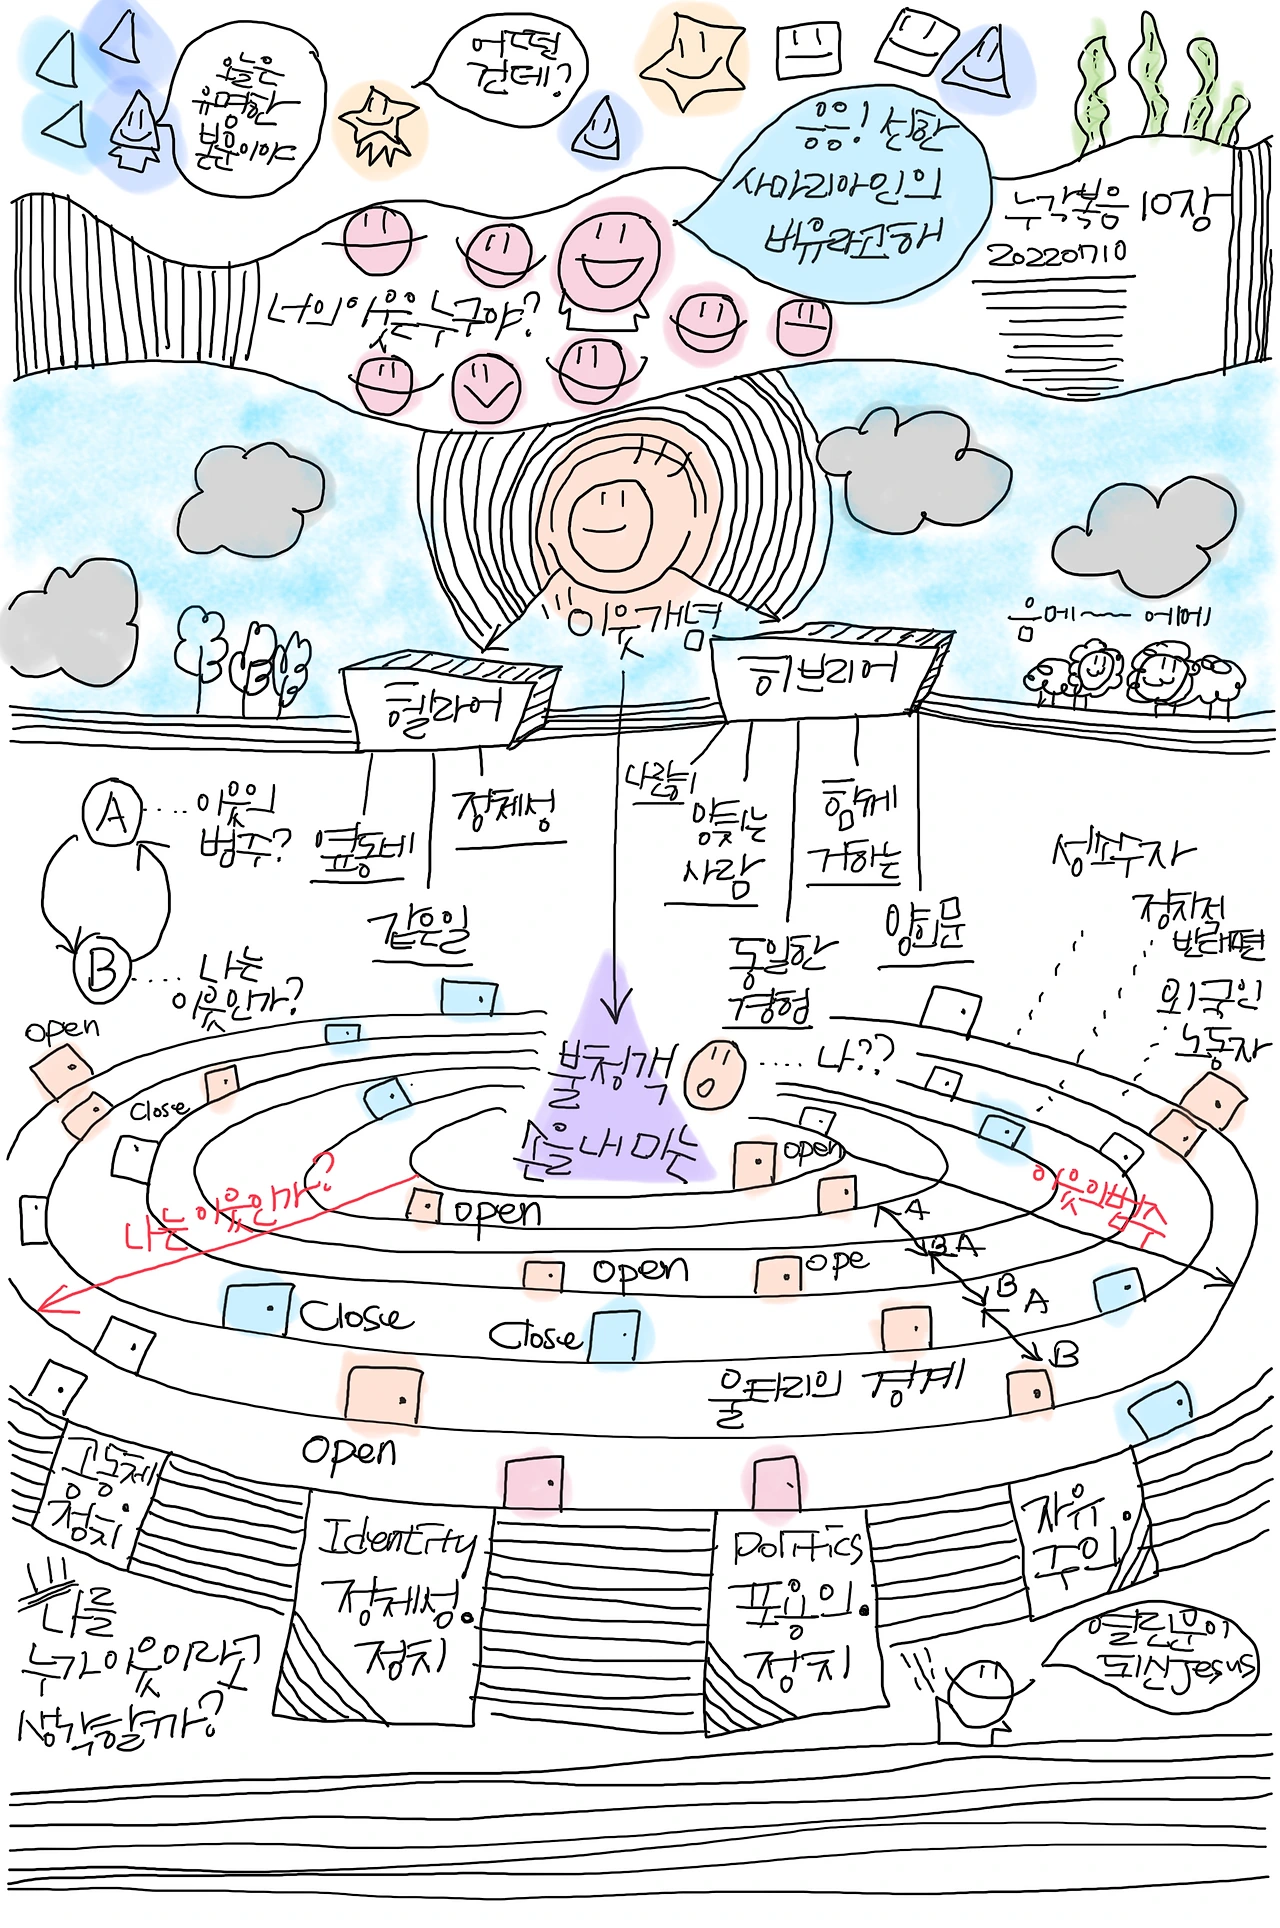 오늘은
유명한
본문이야
어떤
건데?
응! 선한
사마리아인의
비유라고해
누가복음 10장
20220710
너의 이웃은 누구야?
"이웃개념
음메~ 에메
헬라어
히브리어
옆동네
같은일
정체성
나란히
양치는
사람
동일한
경험
함께
거하는
양의문
A
이웃의
범주?
B
나는
이웃인가?
성소수자
정치적
반대편
외국인
노동자
불청객
나??
손을내미는
open
Close
open
open
나는 이웃인가?
이웃의범주
A
B A
B A
B
open
ope
Close
Close
울타리의 경계
open
공동체
정치
Identity
정체성
정치
Politics
포용의
정치
자유
주의
나를
누가 이웃이라고
생각할까?
열린문이
되신 Jesus